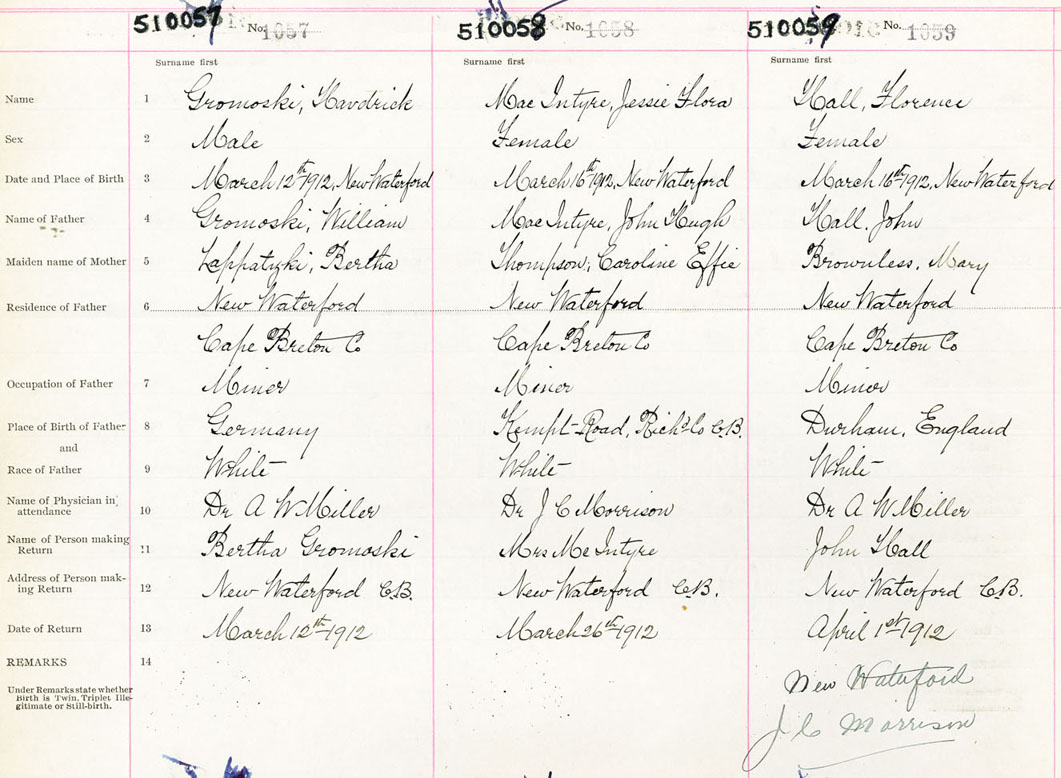 510057 No. 1057 510058 No. 1058 510059 No. 1059
Surname first Surname first Surname first
Name 1 Gromoski, Havdrick Mac Intyre, Jessie Flora Hall, Florence
Sex 2 Male Female Female
Date and Place of Birth 3 March 12th 1912, New Waterford March 16th 1912, New Waterford March 16th 1912, New Waterford
Name of Father 4 Gromoski, William Mac Intyre, John Hugh Hall, John
Maiden name of Mother 5 Bertha Thompson, Caroline Effie Brownless, Mary
Residence of Father 6 New Waterford New Waterford New Waterford
Cape Breton Co Cape Breton Co Cape Breton Co
Occupation of Father 7 Miner Miner Miner
Place of Birth of Father 8 Germany Kempt-Road, Richd Co C.B. Durham, England
and
Race of Father 9 White White White
Name of Physician in attendance 10 Dr A W Miller Dr J C Morrison Dr A W Miller
Name of Person making Return 11 Bertha Gromoski Mrs Mc Intyre John Hall
Address of Person mak-
ing Return 12 New Waterford C.B. New Waterford C.B. New Waterford C.B.
Date of Return 13 March 12th 1912 March 26th 1912 April 1st 1912
REMARKS 14
Under Remarks state whether
Birth is Twin, Triplet, Ille-
gitimate or Still-birth.
New Waterford
J C Morrison